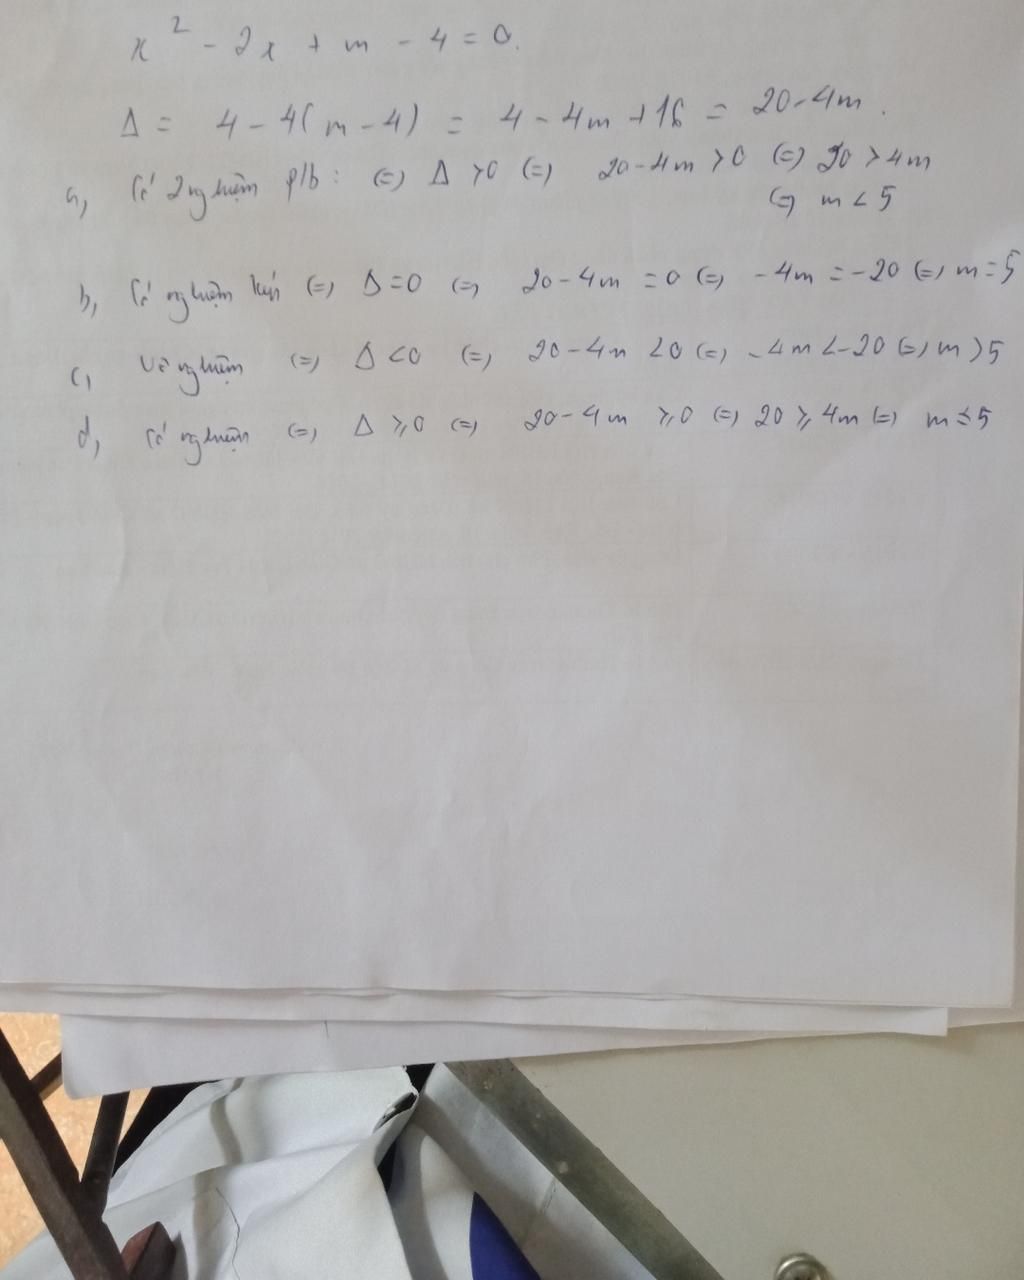 x² - 2x + m - 4 = 0.
Δ = 4 - 4(m - 4) = 4 - 4m + 16 = 20 - 4m.
a, Có 2 nghiệm p/b : (=) Δ > 0 (=) 20 - 4m > 0 (=) 20 > 4m
(=) m < 5
b, Có nghiệm kép (=) Δ = 0 (=) 20 - 4m = 0 (=) - 4m = - 20 (=) m = 5
c, Vô nghiệm (=) Δ < 0 (=) 20 - 4m < 0 (=) - 4m < - 20 (=) m > 5
d, Có nghiệm (=) Δ ≥ 0 (=) 20 - 4m ≥ 0 (=) 20 ≥ 4m (=) m ≤ 5